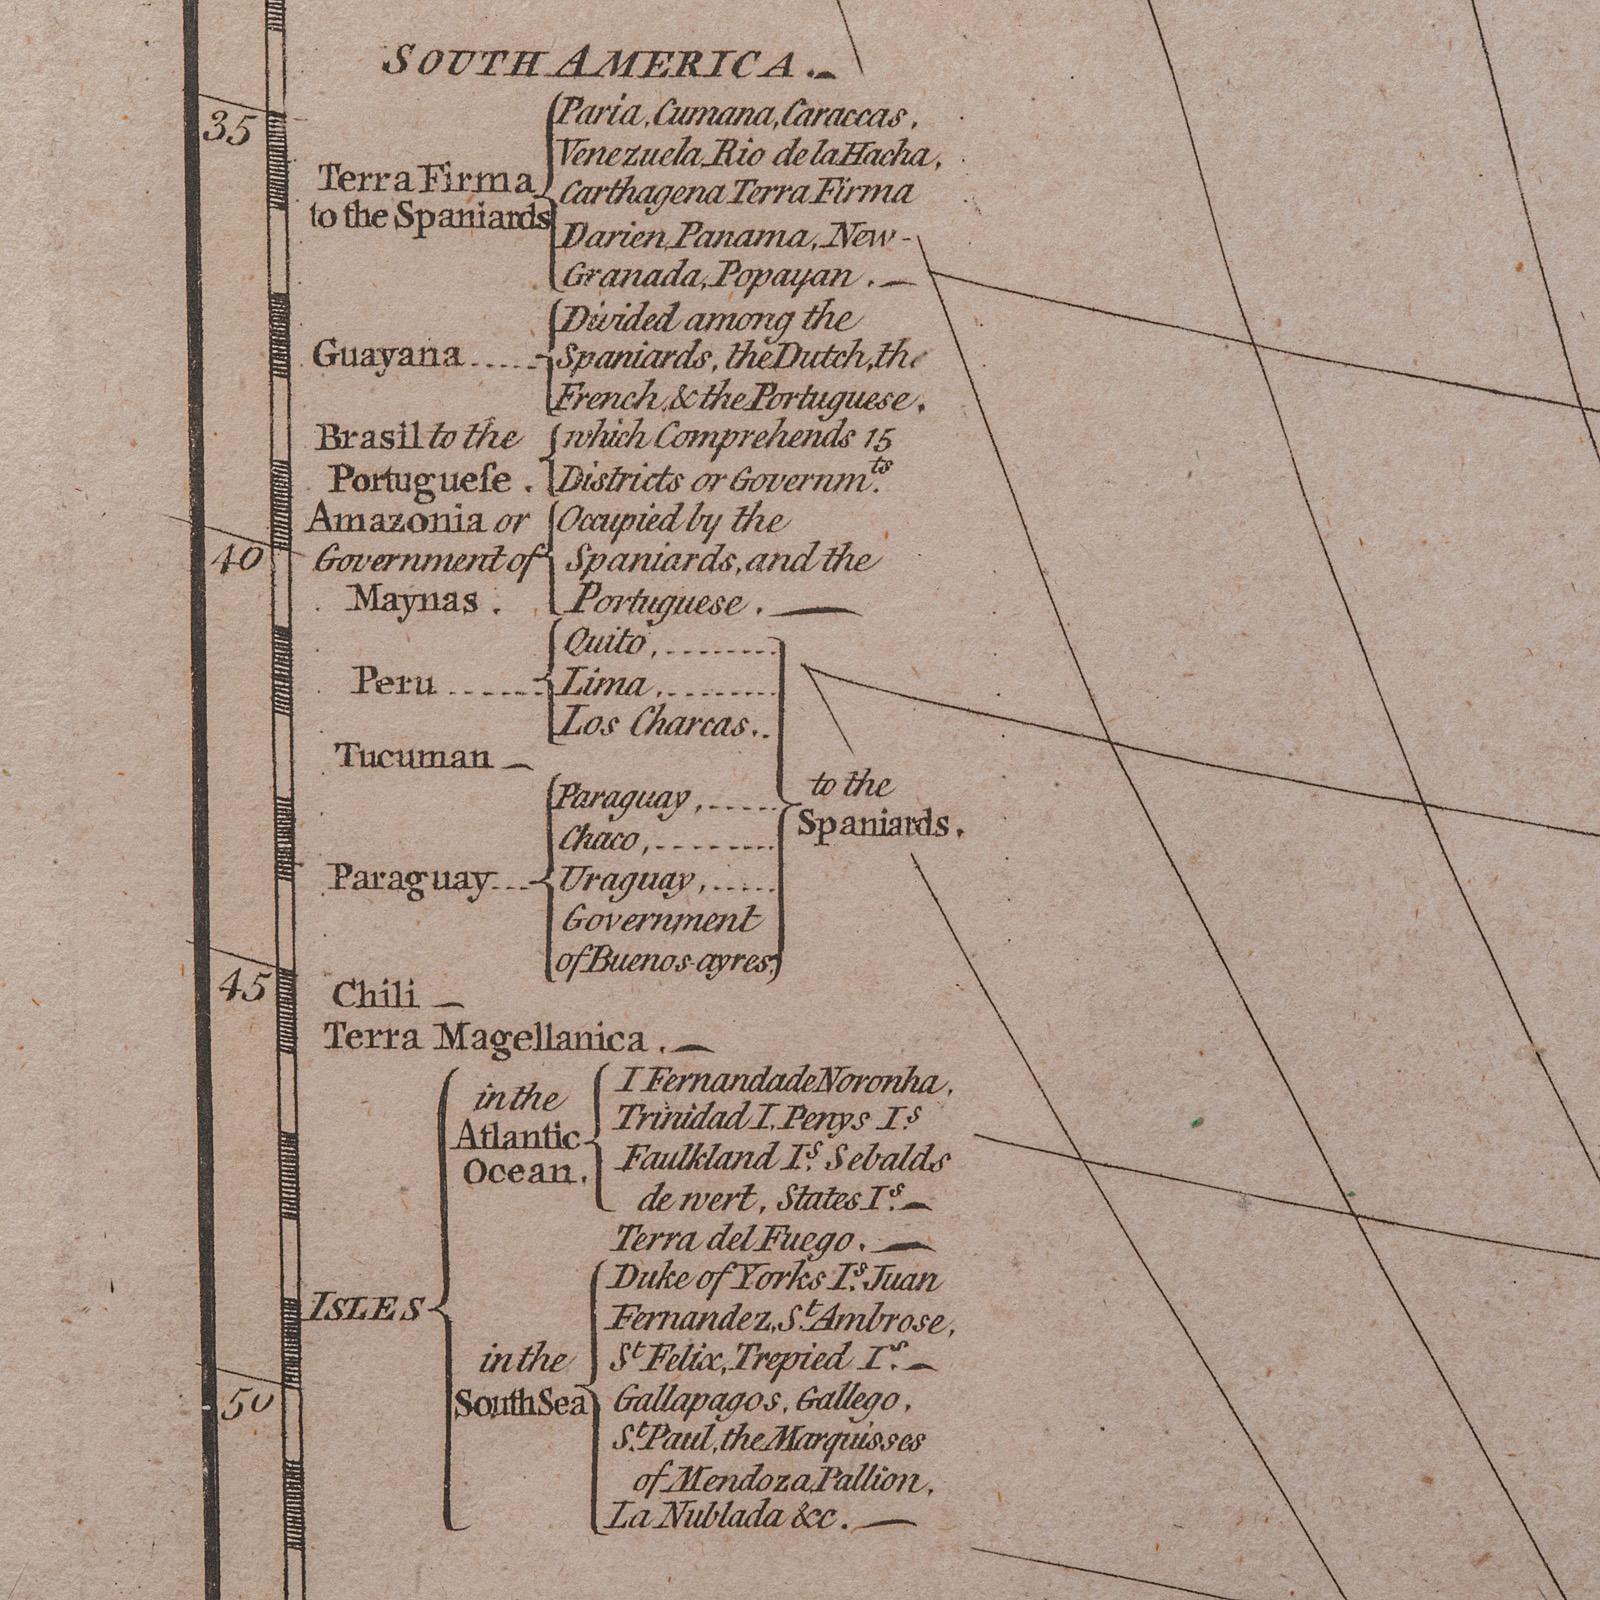 SOUTH AMERICA.
35
Terra Firma
to the Spaniards
Paria, Cumana, Caraccas,
Venezuela, Rio de la Hacha,
Carthagena Terra Firma
Darien, Panama, New-
Granada, Popayan.
Guayana
Divided among the
Spaniards, the Dutch, the
French, & the Portuguese.
Brasil to the
Portuguese.
which Comprehends 15
Districts or Governm.ts
Amazonia or
Government of
Maynas.
Occupied by the
Spaniards, and the
Portuguese.
40
Peru
Quito,
Lima,
Los Charcas.
Tucuman
Paraguay
Paraguay,
Chaco,
Uraguay,
Government
of Buenos-ayres,
to the
Spaniards.
45
Chili
Terra Magellanica.
ISLES
in the
Atlantic
Ocean.
I Fernanda de Noronha,
Trinidad I, Penys I.s
Faulkland I.s Sebalds
de wert, States I.s
Terra del Fuego.
in the
South Sea
Duke of Yorks I.s Juan
Fernandez, S.t Ambrose,
S.t Felix, Trepied I.s
Gallapagos, Gallego,
S.t Paul, the Marquisses
of Mendoza, Pallion,
La Nublada &c.
50